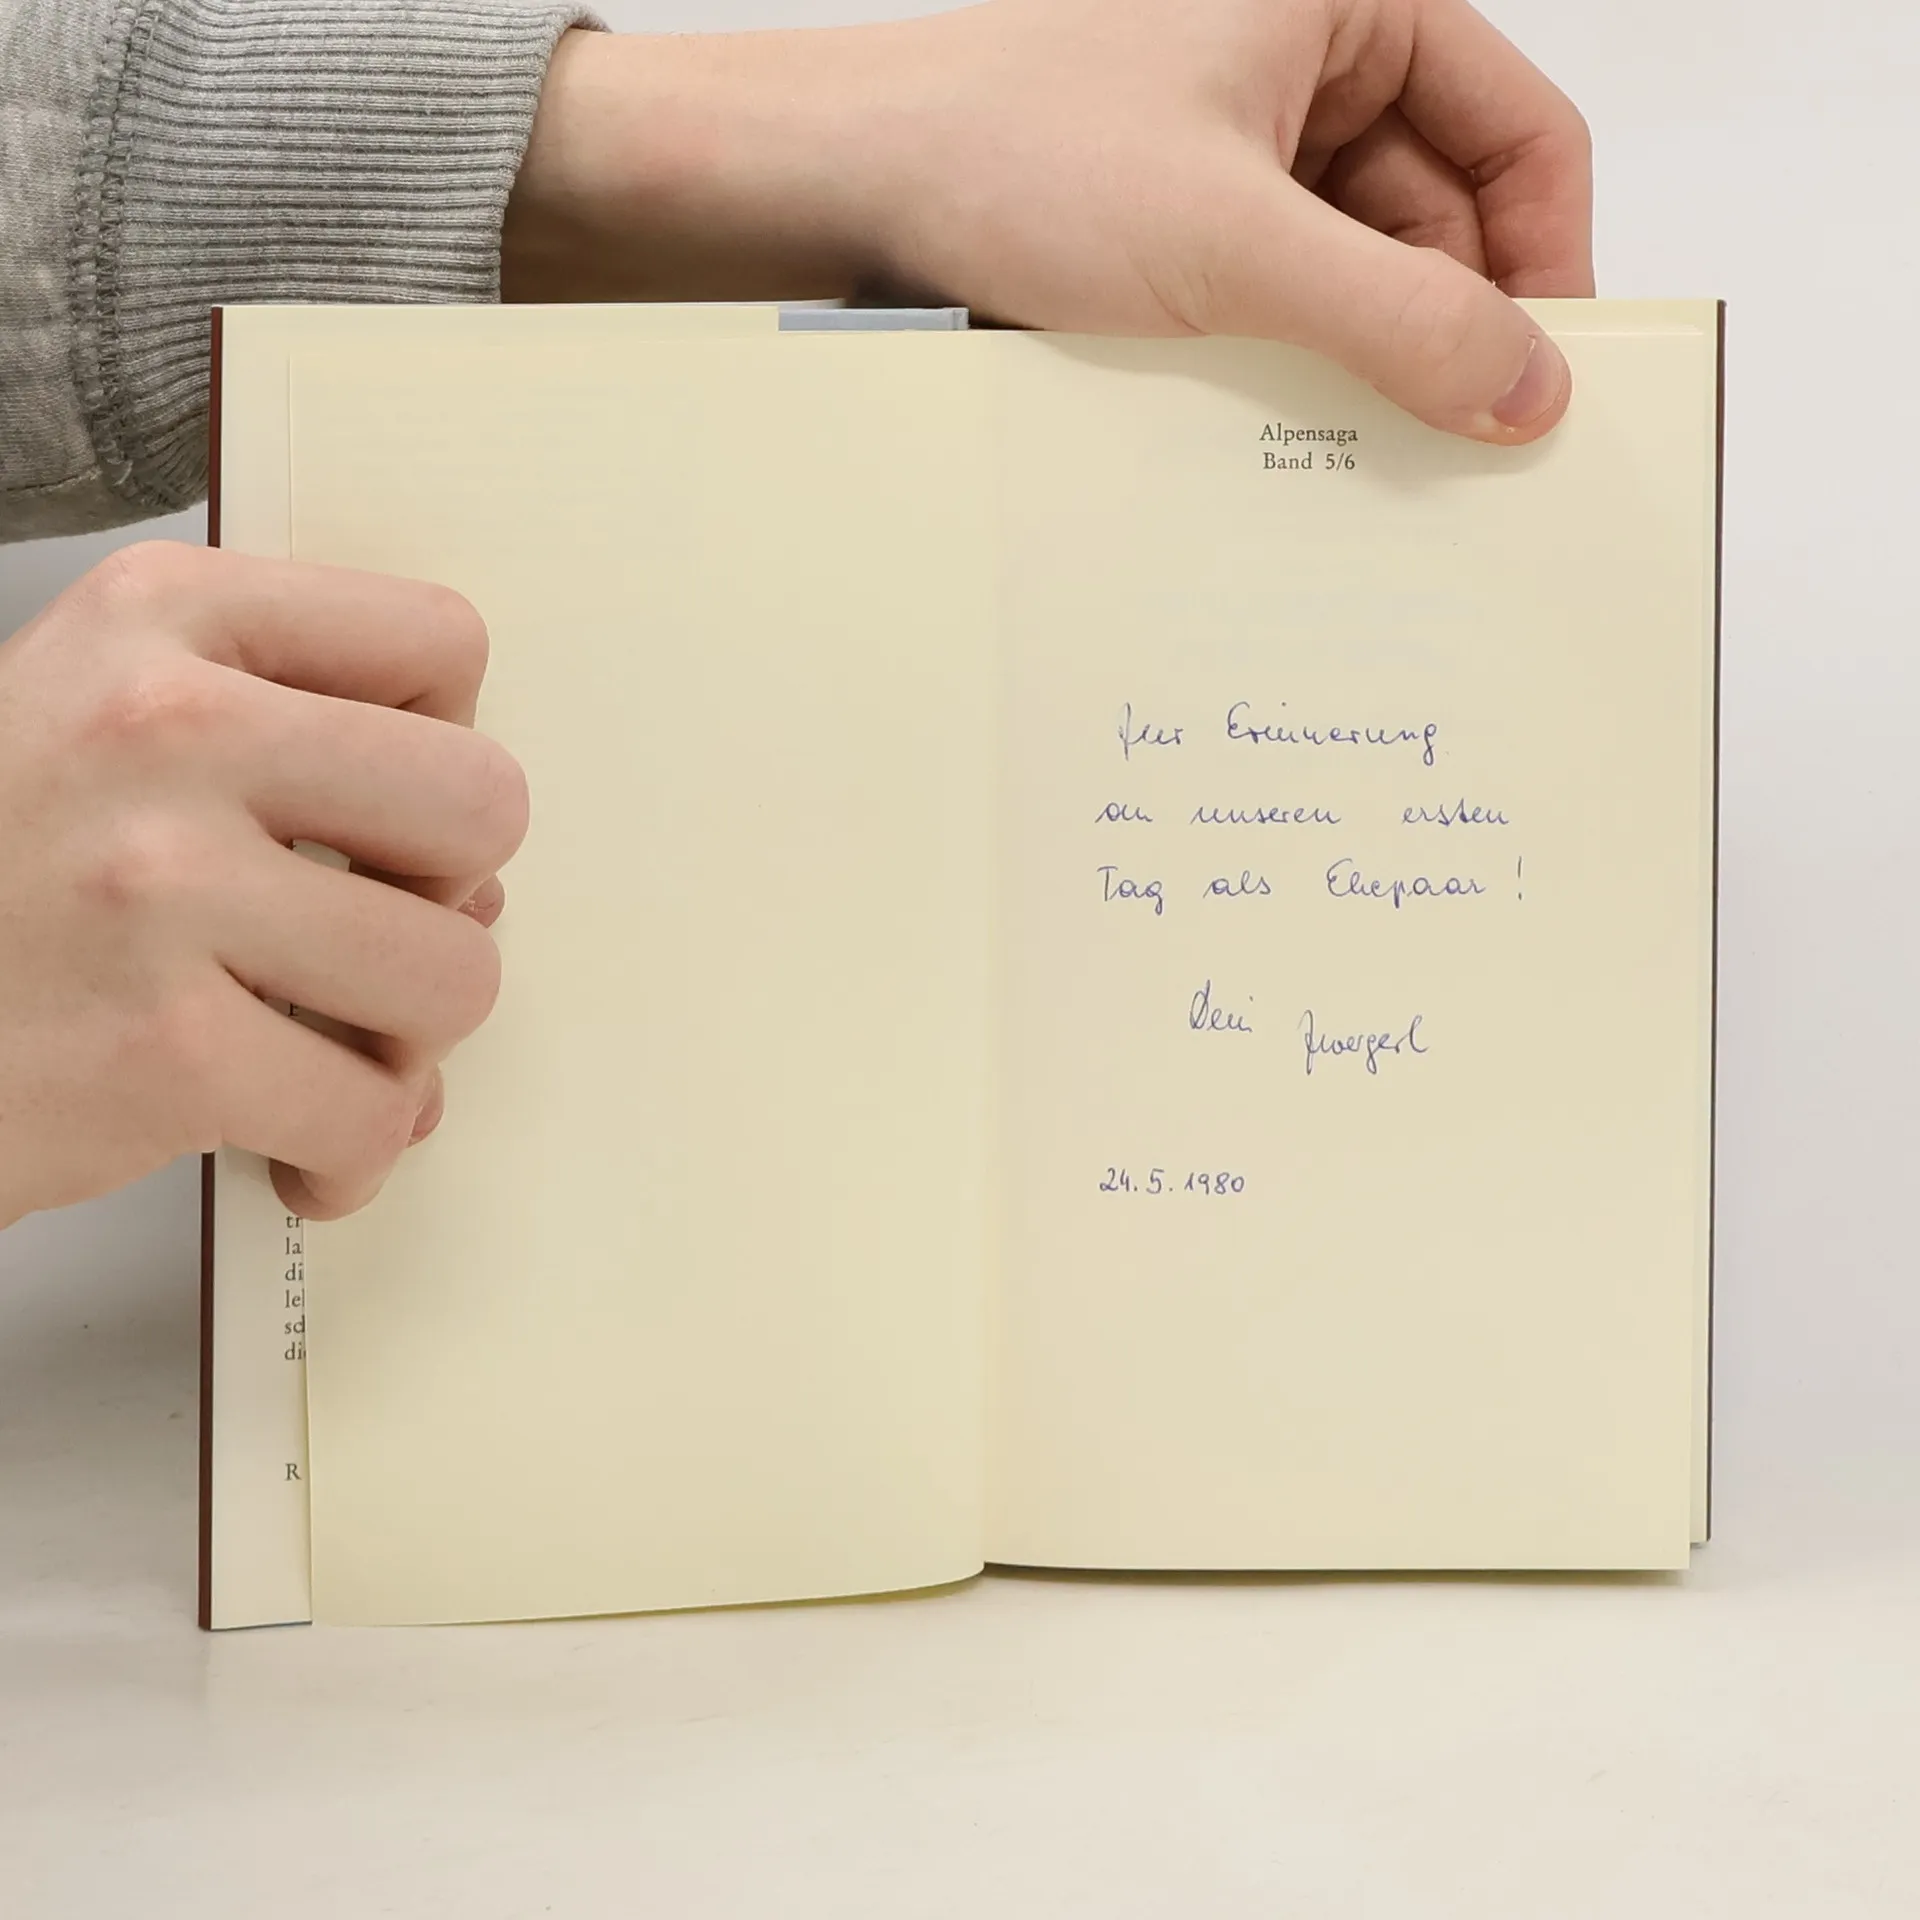 Alpensaga
Band 5/6
Zur Erinnerung
an unseren ersten
Tag als Ehepaar!
Dein Zwergerl
24.5.1980
tr
la
di
le
sc
di
R